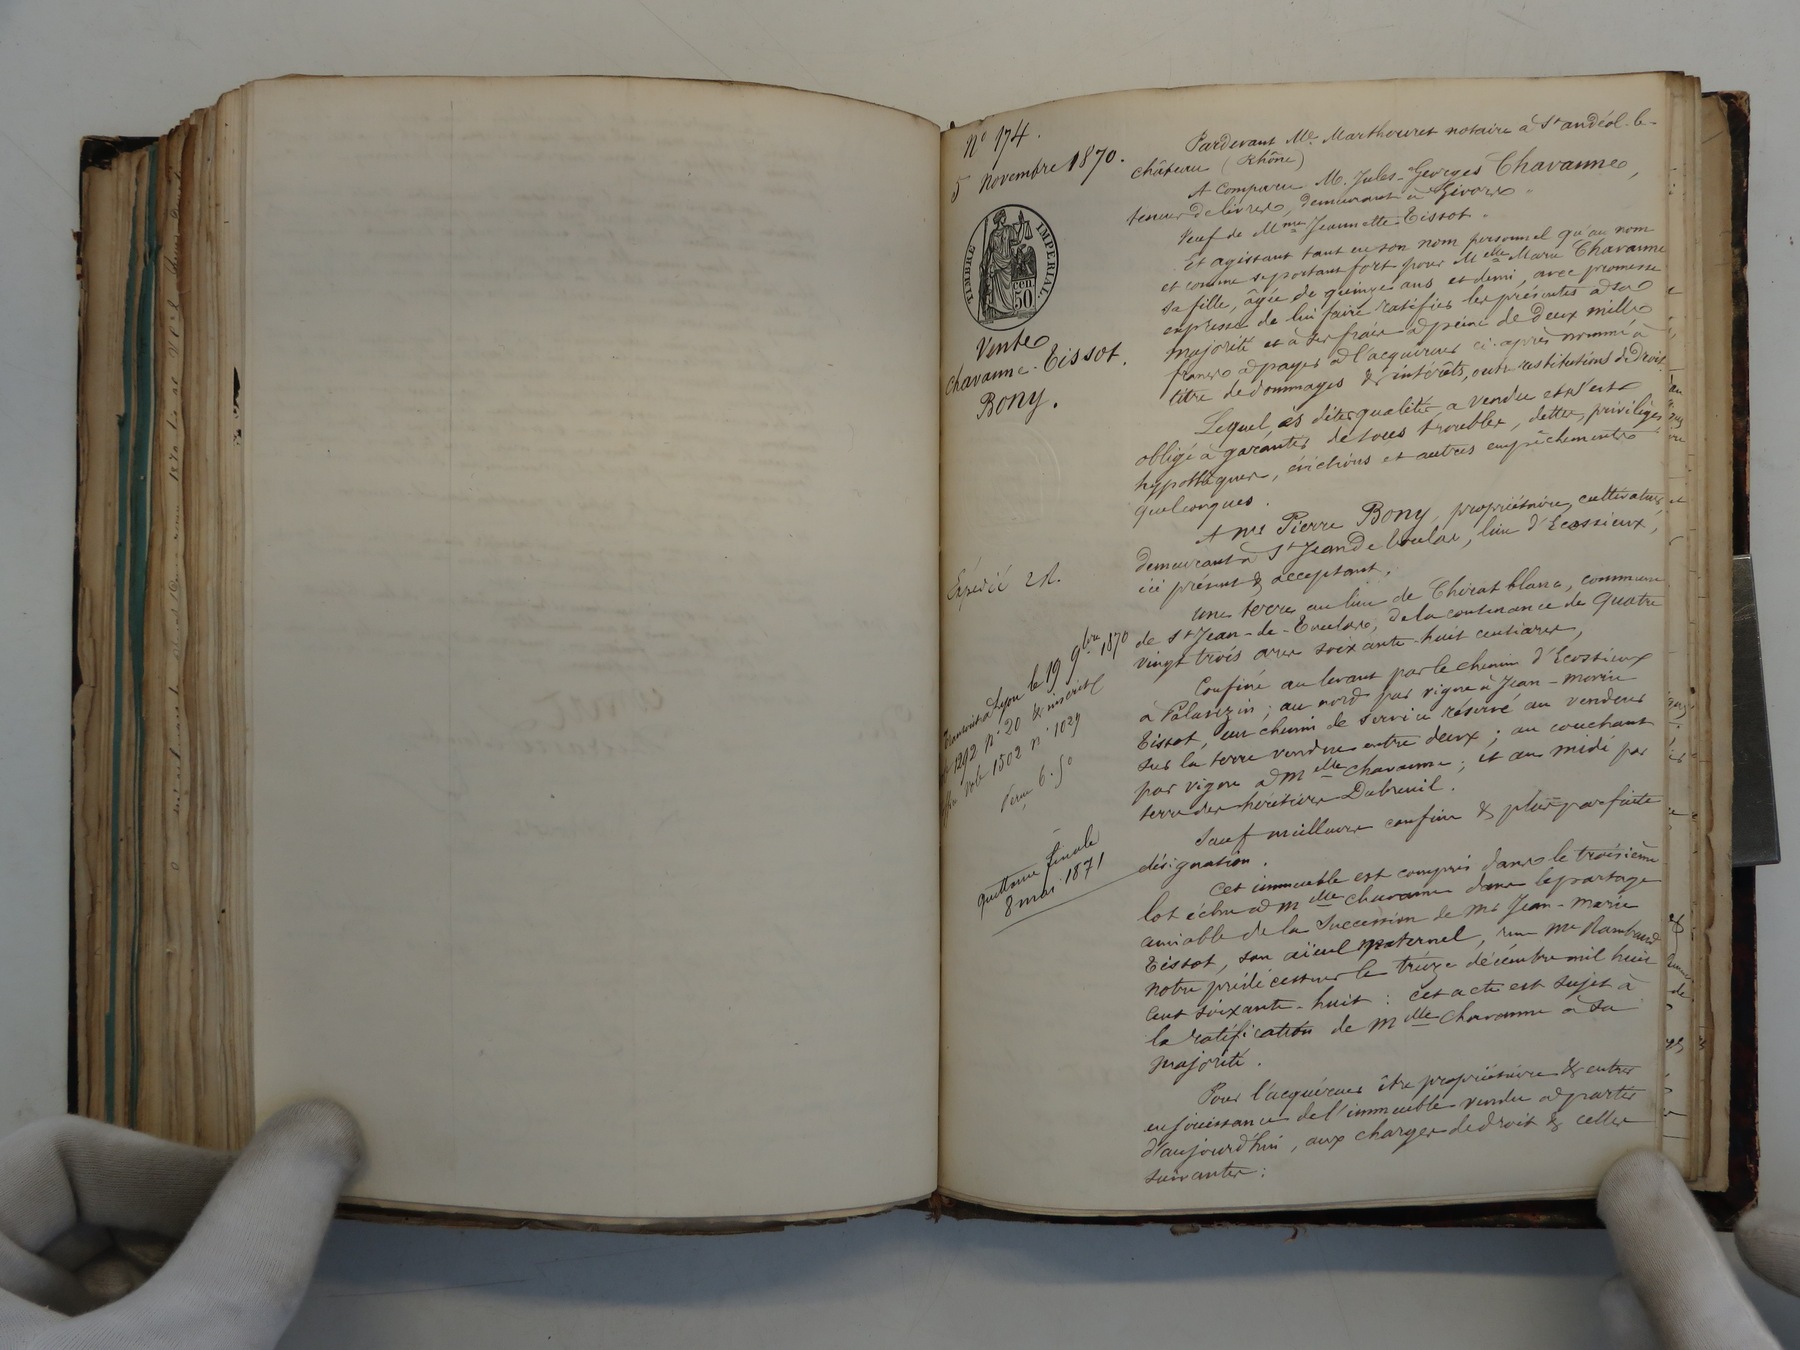 N° 174.
5 novembre 1870.
TIMBRE IMPERIAL.
50 cen
Vente
Chavanne-Tissot.
Bony.
Expédié 2 R.
Transcrit à Lyon le 19 9bre 1870
1292 n° 20 & inscrit
vol. 1502 n° 1029
6.50
quittance finale
8 mai 1871
Pardevant Me Marthouret notaire à St andéol-le-
château (Rhône)
A Comparu M. Jules-Georges Chavanne,
teneur de livres, demeurant à Givors.
Veuf de Mme Jeannette Tissot.
Et agissant tant en son nom personnel qu'au nom
et comme se portant fort pour Melle Marie Chavanne
sa fille, âgée de quinze ans et demi, avec promesse
expresse de lui faire ratifier les présentes à sa
majorité et à ses frais à peine de deux mille
francs à payer à l'acquéreur ci-après nommé à
titre de dommages & intérêts, outre restitutions de droit.
Lequel, ès dites qualités, a vendu et s'est
obligé à garantir de tous troubles, dettes, privilèges
hypothèques, évictions et autres empêchements
quelconques.
A Mr Pierre Bony, propriétaire cultivateur,
demeurant à St Jean de Toulas, lieu d'Ecossieux,
ici présent & acceptant,
Une terre au lieu de Chirat blanc, commune
de St Jean-de-Toulas, de la contenance de quatre
vingt trois ares soixante-huit centiares,
Confiné au levant par le chemin d'Ecossieux
à Palavezin; au nord par vigne à Jean-Marie
Tissot, un chemin de service réservé au vendeur
sur la terre vendue entre deux; au couchant
par vigne à Melle Chavanne; et au midi par
terre des héritiers Dubreuil.
Sauf meilleurs confins & plus parfaite
désignation.
Cet immeuble est compris dans le troisième
lot échu à Melle Chavanne dans le partage
amiable de la succession de Mr Jean-Marie
Tissot, son aïeul maternel, reçu Me Rambaud
notre prédécesseur le treize décembre mil huit
cent soixante-huit: cet acte est sujet à
la ratification de Melle Chavanne à sa
majorité.
Pour l'acquéreur être propriétaire & entrer
en jouissance de l'immeuble vendu à partir
d'aujourd'hui, aux charges de droit & celles
suivantes: